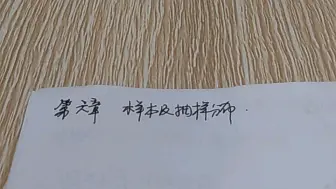 第六章 样本及抽样分布.